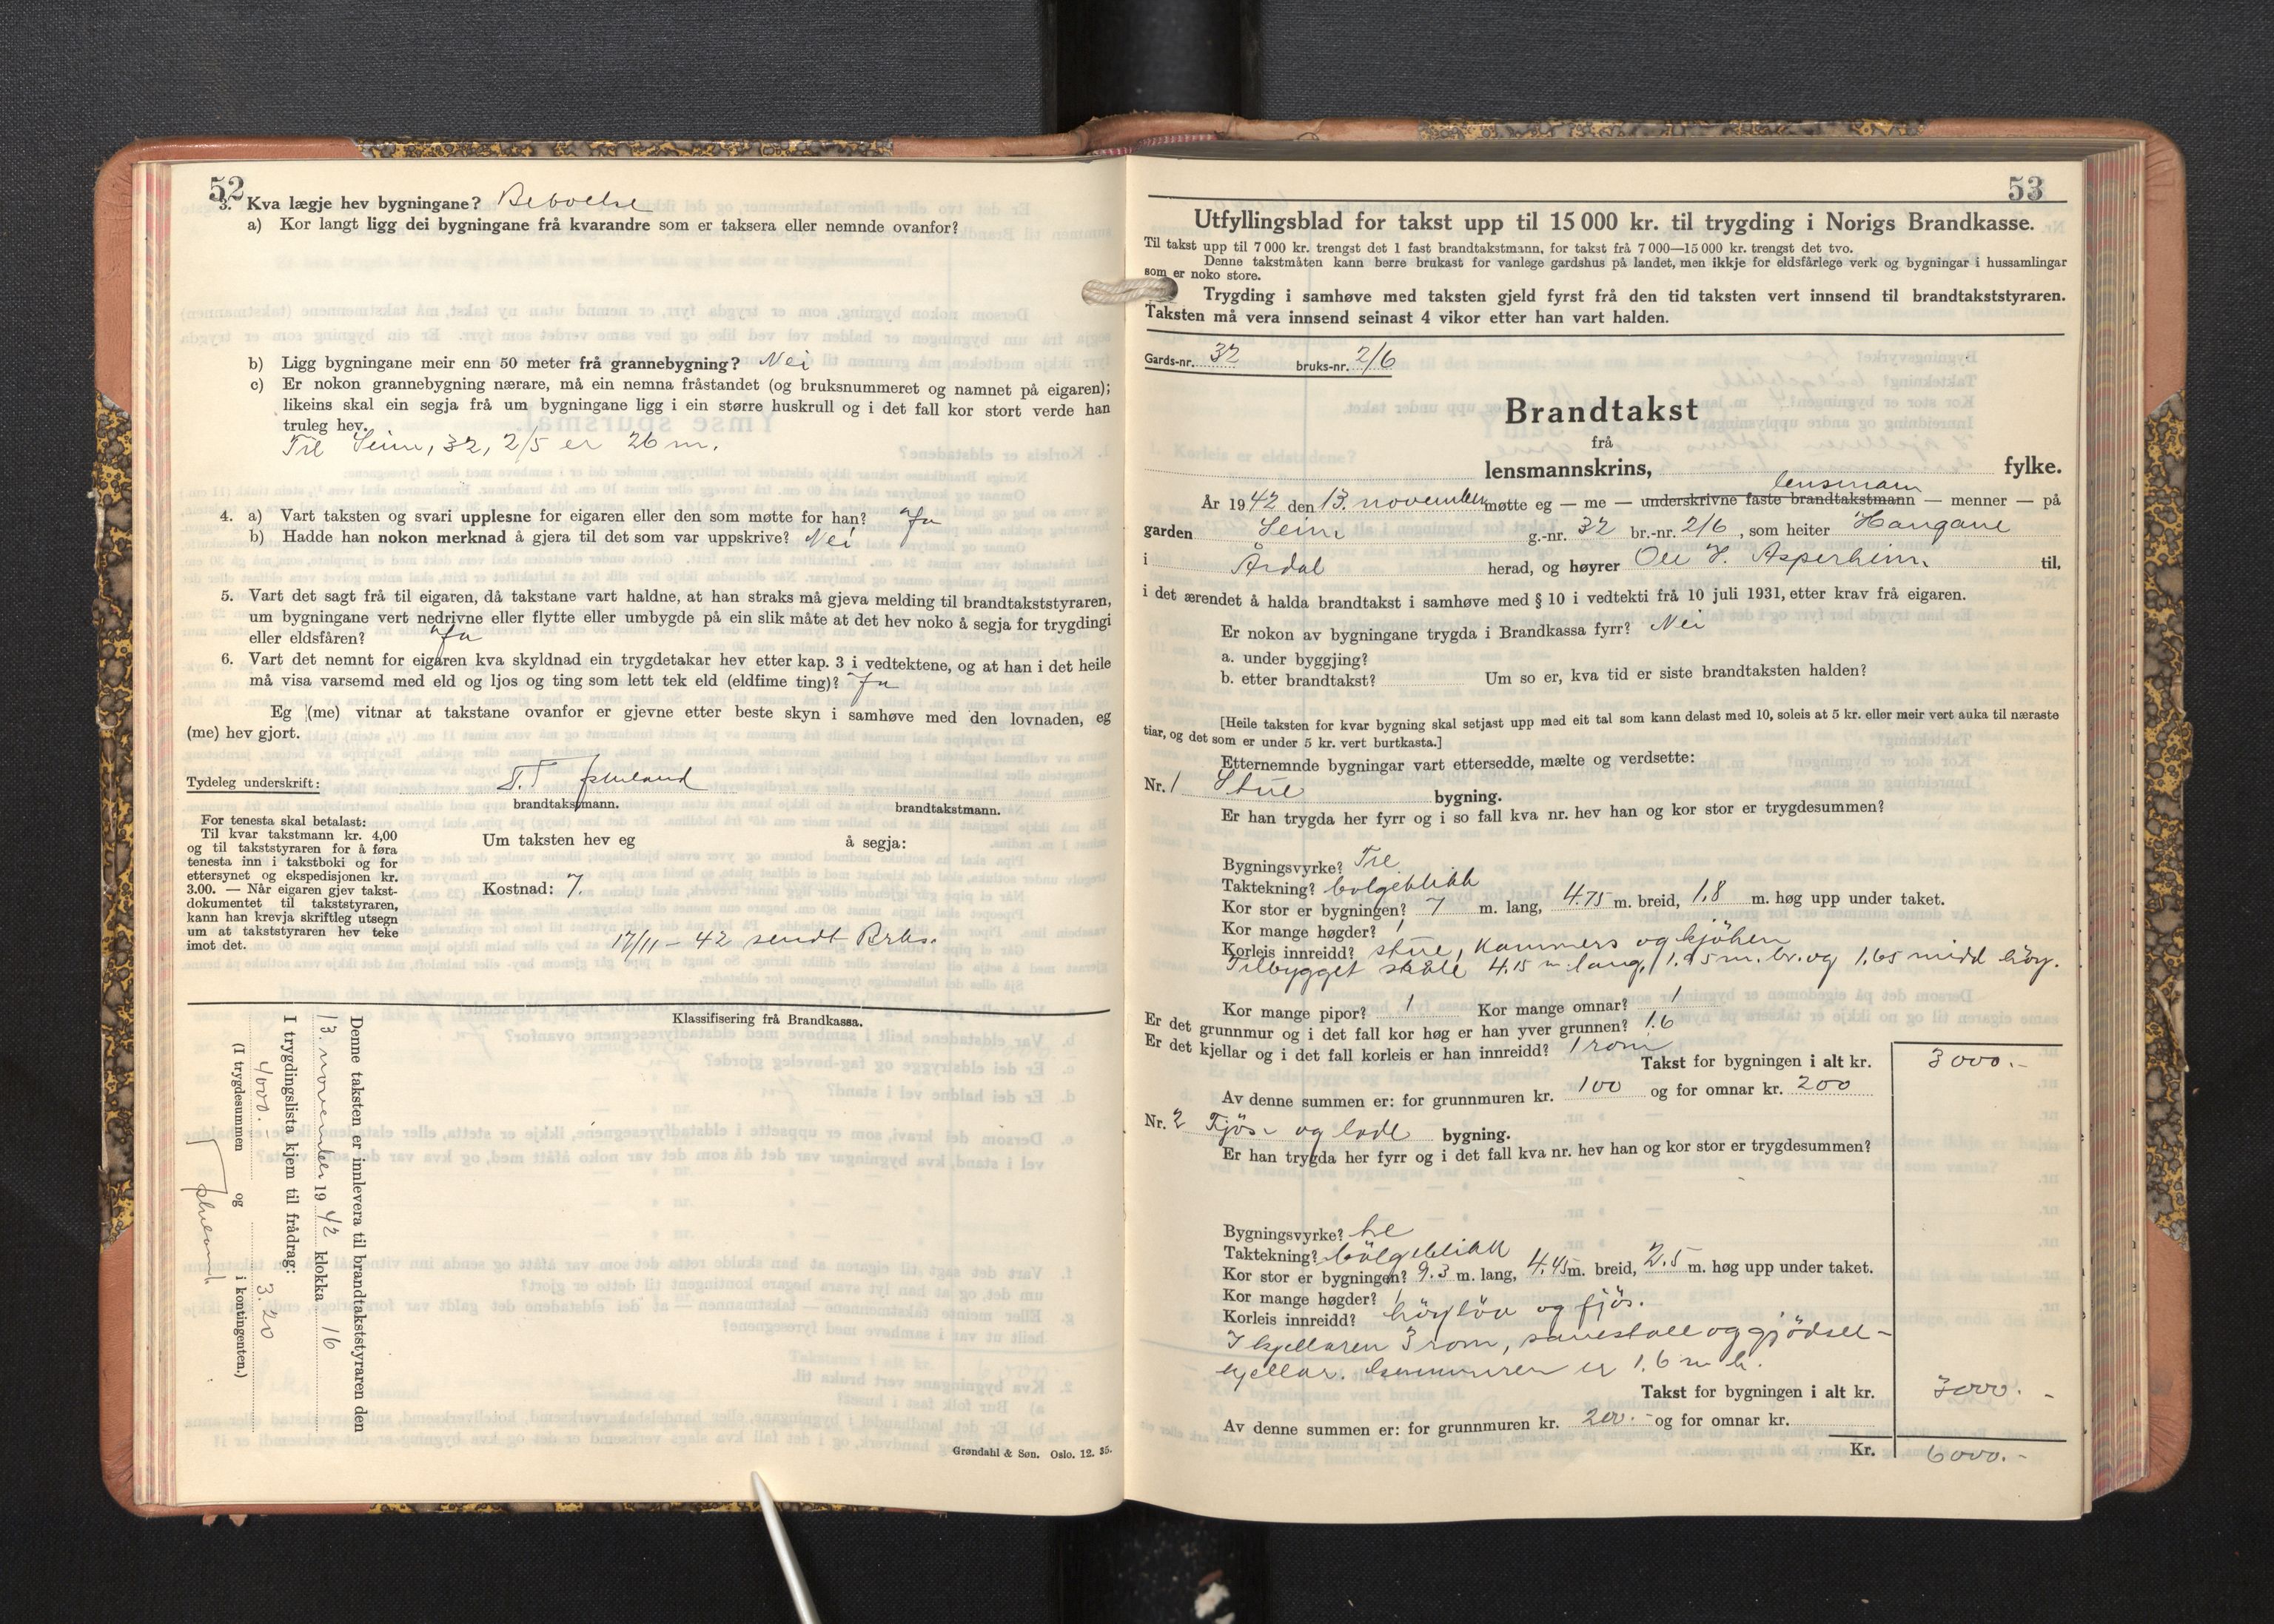 52
3. Kva lægje hev bygningane? Beboelse
a) Kor langt ligg dei bygningane frå kvarandre som er taksera eller nemnde ovanfor?
b) Ligg bygningane meir enn 50 meter frå grannebygning? Nei
c) Er nokon grannebygning nærare, må ein nemna fråstandet (og bruksnummeret og namnet på eigaren);
likeins skal ein segja frå um bygningane ligg i ein større huskrull og i det fall kor stort verde han
truleg hev.
Til Seim, 32, 2/5 er 26 m.
4. a) Vart taksten og svari upplesne for eigaren eller den som møtte for han? Ja
b) Hadde han nokon merknad å gjera til det som var uppskrive? Nei
5. Vart det sagt frå til eigaren, då takstane vart haldne, at han straks må gjeva melding til brandtakststyraren,
um bygningane vert nedrivne eller flytte eller umbygde på ein slik måte at det hev noko å segja for trygdingi
eller eldsfåren? Ja
6. Vart det nemnt for eigaren kva skyldnad ein trygdetakar hev etter kap. 3 i vedtektene, og at han i det heile
må visa varsemd med eld og ljos og ting som lett tek eld (eldfime ting)? Ja
Eg (me) vitnar at takstane ovanfor er gjevne etter beste skyn i samhøve med den lovnaden, eg
(me) hev gjort.
Tydeleg underskrift:
brandtakstmann. brandtakstmann.
For tenesta skal betalast:
Til kvar takstmann kr. 4,00
og til takststyraren for å føra
tenesta inn i takstboki og for
ettersynet og ekspedisjonen kr.
3.00. — Når eigaren gjev takst-
dokumentet til takststyraren,
kann han krevja skriftleg utsegn
um at takststyraren hev teke
imot det.
Um taksten hev eg å segja:
Kostnad: 7.
17/11 - 42 sendt Brks.
Klassifisering frå Brandkassa.
Denne taksten er innlevera til brandtakststyraren den
13. november 1942 klokka 16
I trygdingslista kjem til frådrag:
4000.- 3.20
(I trygdesummen og i kontingenten.)
Grøndahl & Søn. Oslo. 12. 35.
53
Utfyllingsblad for takst upp til 15 000 kr. til trygding i Norigs Brandkasse.
Til takst upp til 7 000 kr. trengst det 1 fast brandtakstmann, for takst frå 7 000—15 000 kr. trengst det tvo.
Denne takstmåten kann berre brukast for vanlege gardshus på landet, men ikkje for eldsfårlege verk og bygningar i hussamlingar
som er noko store.
Trygding i samhøve med taksten gjeld fyrst frå den tid taksten vert innsend til brandtakststyraren.
Taksten må vera innsend seinast 4 vikor etter han vart halden.
Gards-nr. 32 bruks-nr. 2/6
Brandtakst
frå
lensmannskrins, fylke.
lensmann
År 1942 den 13. november møtte eg — me — underskrivne faste brandtakstmann — menner — på
garden Seim g.-nr. 32 br.-nr. 2/6, som heiter Haugane
i Årdal herad, og høyrer Ole J. Asperheim. til,
i det ærendet å halda brandtakst i samhøve med § 10 i vedtekti frå 10 juli 1931, etter krav frå eigaren.
Er nokon av bygningane trygda i Brandkassa fyrr? Nei
a. under byggjing?
b. etter brandtakst? Um so er, kva tid er siste brandtaksten halden?
[Heile taksten for kvar bygning skal setjast upp med eit tal som kann delast med 10, soleis at 5 kr. eller meir vert auka til næraste
tiar, og det som er under 5 kr. vert burtkasta.]
Etternemnde bygningar vart ettersedde, mælte og verdsette:
Nr. 1 Stue bygning.
Er han trygda her fyrr og i so fall kva nr. hev han og kor stor er trygdesummen?
Bygningsvyrke? Tre
Taktekning? bølgeblikk
Kor stor er bygningen? 7 m. lang, 4.75 m. breid, 1.8 m. høg upp under taket.
Kor mange høgder? 1
Korleis innreidd? stue, kammers og kjøken
Tilbygget skåle 4.15 m. lang, 1.75 m. br. og 1.65 midd høy.
Kor mange pipor? 1 Kor mange omnar? 1
Er det grunnmur og i det fall kor høg er han yver grunnen? 1.6
Er det kjellar og i det fall korleis er han innreidd? 1 rom
Takst for bygningen i alt kr. 3000.-
Av denne summen er: for grunnmuren kr. 100 og for omnar kr. 200
Nr. 2 Fjøs- og løde bygning.
Er han trygda her fyrr og i det fall kva nr. hev han og kor stor er trygdesummen?
Bygningsvyrke? tre
Taktekning? bølgeblikk
Kor stor er bygningen? 9.3 m. lang, 4.45 m. breid, 2.5 m. høg upp under taket.
Kor mange høgder? 1
Korleis innreidd? høyløe og fjøs.
I kjellaren 3 rom, sauestall og gjødsel-
kjellar. Grunnmuren er 1.6 m h.
Takst for bygningen i alt kr. 3000.-
Av denne summen er: for grunnmuren kr. 200.- og for omnar kr.
Kr. 6000.-